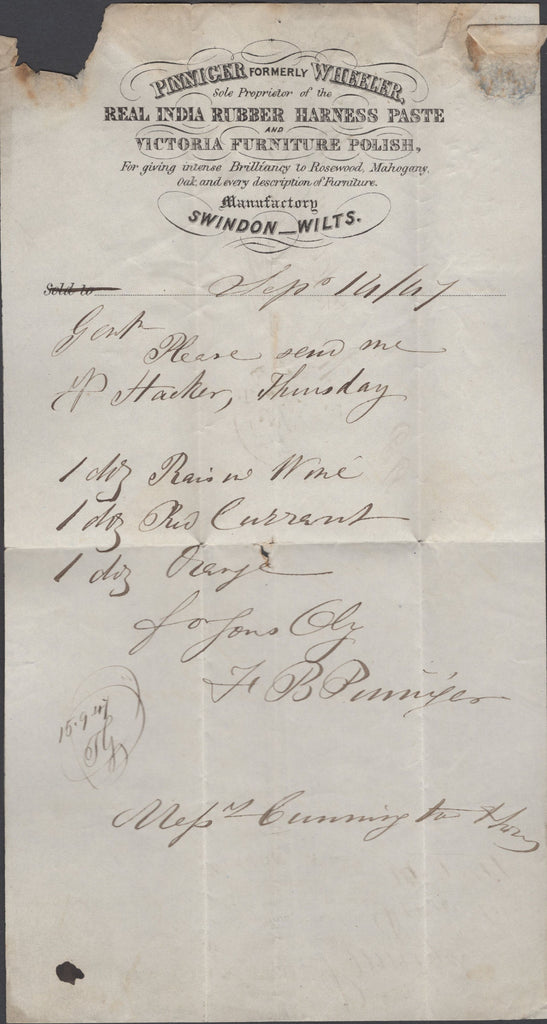 PINNIGER FORMERLY WHEELER,
Sole Proprietor of the
REAL INDIA RUBBER HARNESS PASTE
AND
VICTORIA FURNITURE POLISH,
For giving intense Brilliancy to Rosewood, Mahogany,
Oak, and every description of Furniture.
Manufactory
SWINDON_WILTS.
Sold to Sepr 14/47
Gent
Please send me
Hacker, Thursday
1 doz Raisin Wine
1 doz Red Currant
1 doz Orange
for yours Oby
F B Pinniger
15.9.47
Messrs Cunnington &